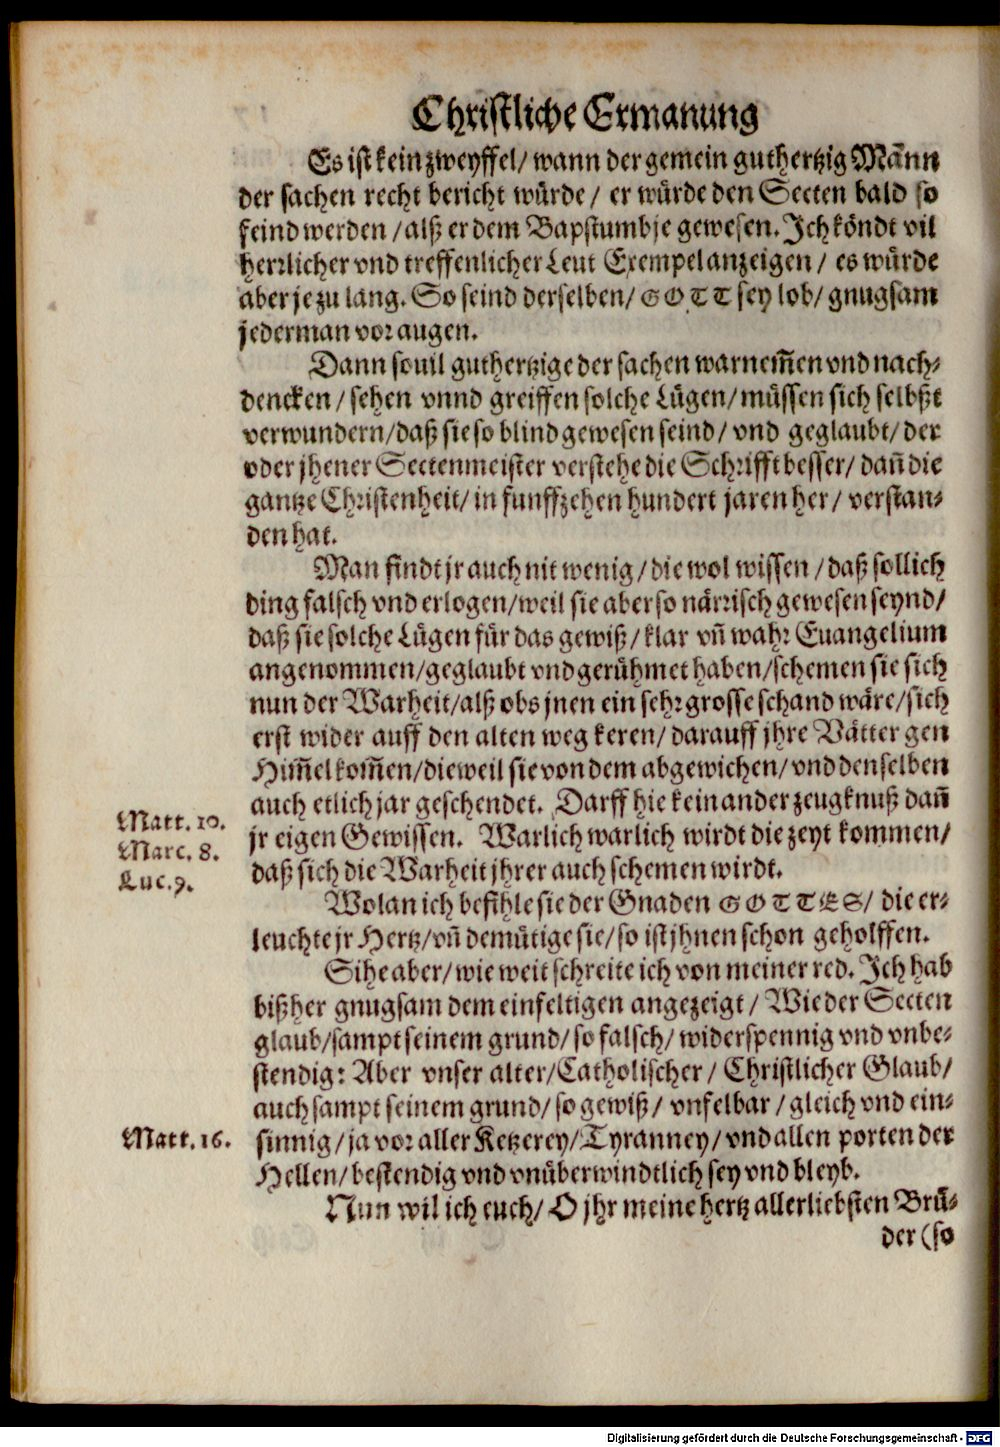 Christliche Ermanung
Es ist kein zweyffel/ wann der gemein guthertzig Mann
der sachen recht bericht würde/ er würde den Secten bald so
feind werden/ alß er dem Bapstumb je gewesen. Ich köndt vil
herrlicher vnd treffenlicher Leut Exempel anzeigen/ es würde
aber je zu lang. So seind derselben/ GOTT sey lob/ gnugsam
jederman vor augen.
Dann souil guthertzige der sachen warnem̃en vnd nach-
dencken/ sehen vnnd greiffen solche Lügen/ müssen sich selbßt
verwundern/ daß sie so blind gewesen seind/ vnd geglaubt/ der
oder jhener Sectenmeister verstehe die Schrifft besser/ dañ die
gantze Christenheit/ in funffzehen hundert jaren her/ verstan-
den hat.
Man findt jr auch nit wenig/ die wol wissen/ daß sollich
ding falsch vnd erlogen/ weil sie aber so närrisch gewesen seynd/
daß sie solche Lügen für das gewiß/ klar vñ wahr Euangelium
angenommen/ geglaubt vnd gerühmet haben/ schemen sie sich
nun der Warheit/ alß obs jnen ein sehr grosse schand wäre/ sich
erst wider auff den alten weg keren/ darauff jhre Vätter gen
Him̃el kom̃en/ dieweil sie von dem abgewichen/ vnd denselben
auch etlich jar geschendet. Darff hie kein ander zeugknuß dañ
Matt. 10.
jr eigen Gewissen. Warlich warlich wirdt die zeyt kommen/
Marc. 8.
daß sich die Warheit jhrer auch schemen wirdt.
Luc. 9.
Wolan ich befihle sie der Gnaden GOTTES/ die er-
leuchte jr Hertz/ vñ demütige sie/ so ist jhnen schon geholffen.
Sihe aber/ wie weit schreite ich von meiner red. Ich hab
bißher gnugsam dem einfeltigen angezeigt/ Wie der Secten
glaub/ sampt seinem grund/ so falsch/ widerspennig vnd vnbe-
stendig: Aber vnser alter/ Catholischer/ Christlicher Glaub/
auch sampt seinem grund/ so gewiß/ vnfelbar/ gleich vnd ein-
Matt. 16.
sinnig/ ja vor aller Ketzerey/ Tyranney/ vnd allen porten der
Hellen/ bestendig vnd vnüberwindtlich sey vnd bleyb.
Nun wil ich euch/ O jhr meine hertz allerliebsten Brü-
der (so
Digitalisierung gefördert durch die Deutsche Forschungsgemeinschaft - DFG